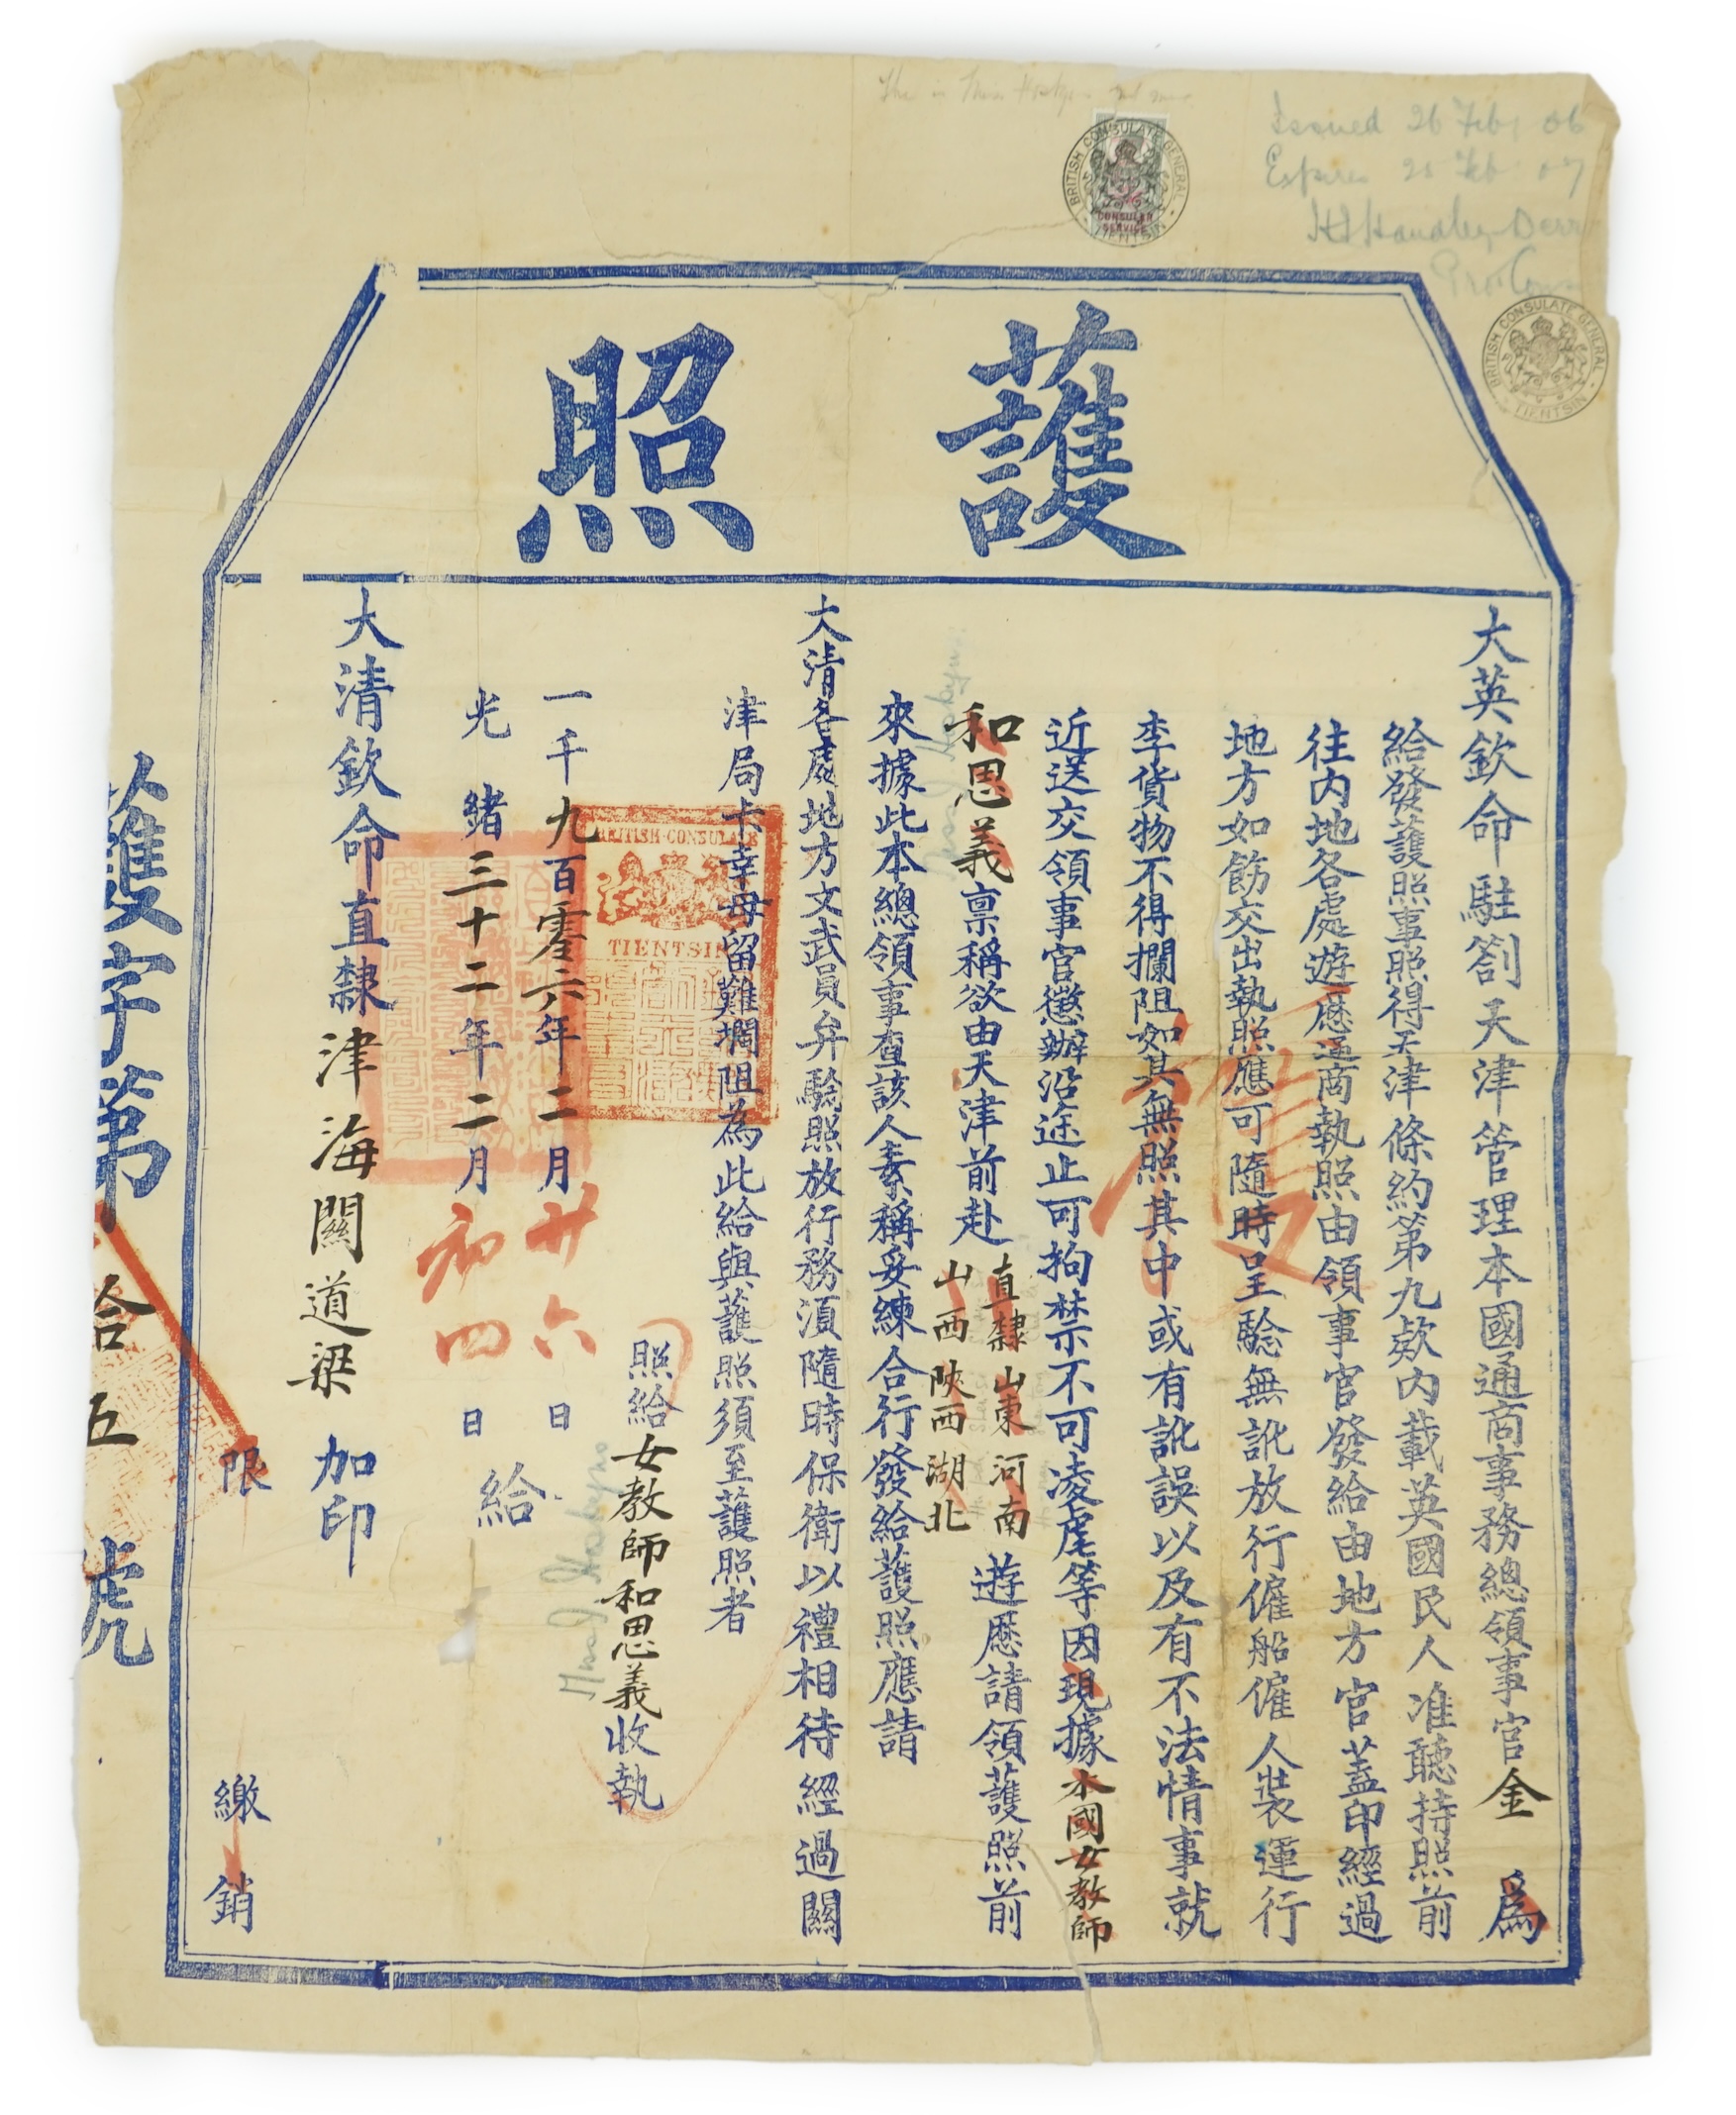 Issued 26 Feb 06
Expires 25 Feb 07
BRITISH CONSULATE GENERAL
TIENTSIN
CONSULAR
SERVICE
BRITISH CONSULATE GENERAL
TIENTSIN
護照
大英欽命駐劄天津管理本國通商事務總領事官金 爲
給發護照事照得天津條約第九欵內載英國民人准聽持照前
往內地各處遊歷通商執照由領事官發給由地方官蓋印經過
地方如飭交出執照應可隨時呈驗無訛放行僱船僱人裝運行
李貨物不得攔阻如其無照其中或有訛誤以及有不法情事就
近送交領事官懲辦沿途止可拘禁不可凌虐等因現據本國女教師
和思義稟稱欲由天津前赴直隸山東河南山西陝西湖北遊歷請領護照前
來據此本總領事查該人素稱妥練合行發給護照應請
大清各處地方文武員弁驗照放行務須隨時保衛以禮相待經過關
津局卡幸毋留難攔阻為此給與護照須至護照者
照給女教師和思義收執
BRITISH·CONSULATE
TIENTSIN
一千九百零六年二月廿六日
光緒三十二年二月初四日
給
大清欽命直隸津海關道梁 加印
限 繳 銷
護字第拾五號